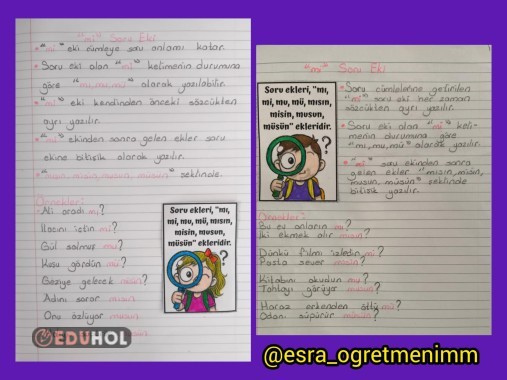 "mi" Soru Eki
* "mi" eki cümleye soru anlamı katar.
* Soru eki olan "mi" kelimenin durumuna
göre "mı, mu, mü" olarak yazılabilir.
* "mi" eki kendinden önceki sözcükten
ayrı yazılır.
* "mi" ekinden sonra gelen ekler soru
ekine bitişik olarak yazılır.
* "mısın, misin, musun, müsün" şeklinde.
Örnekler:
Ali aradı mı?
İlacını içtin mi?
Gül solmuş mu?
Kuşu gördün mü?
Geziye gelecek misin?
Adını sorar mısın
Onu özlüyor musun
Soru ekleri, "mı,
mi, mu, mü, mısın,
misin, musun,
müsün" ekleridir.
EDUHOL
"mi" Soru Eki
Soru ekleri, "mı,
mi, mu, mü, mısın,
misin, musun,
müsün" ekleridir.
* Soru cümlelerine getirilen
"mi" soru eki her zaman
sözcükten ayrı yazılır.
* Soru eki olan "mi" keli-
menin durumuna göre
"mı, mu, mü" olarak yazılır.
* "mi" soru ekinden sonra
gelen ekler "mısın, misin,
musun, müsün" şeklinde
bitişik yazılır.
Örnekler:
Bu ev onların mı?
İki ekmek alır mısın?
Dünkü filmi izledin mi?
Pasta sever misin?
Kitabını okudun mu?
Tahtayı görüyor musun?
Horoz erkenden öttü mü?
Odanı süpürür müsün?
@esra_ogretmenimm